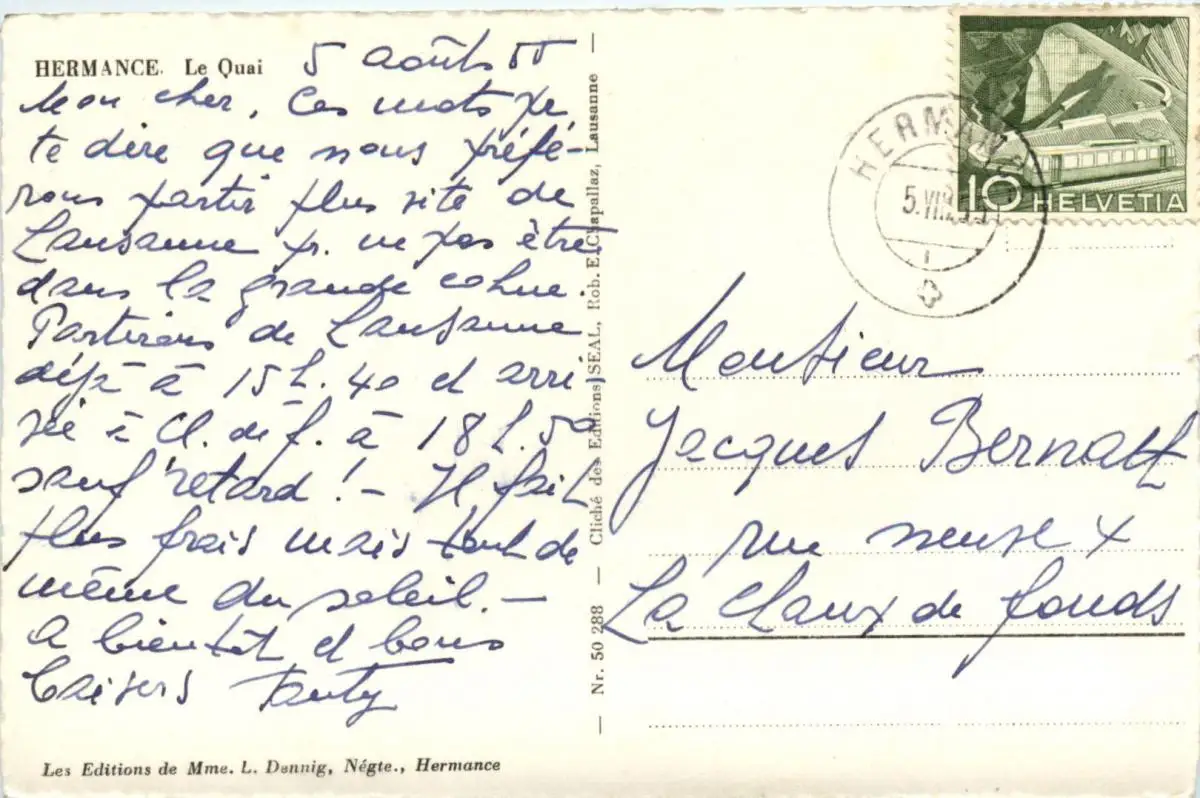 HERMANCE. Le Quai
5 août 55
Mon cher, Ces mots pr.
te dire que nous préfé-
rons partir plus vite de
Lausanne pr. ne pas être
dans la grande cohue.
Partirons de Lausanne
déjà à 15 h. 40 et arri
vée à Ch. de f. à 18 h. 50
sauf retard ! - Il fait
plus frais mais tout de
même du soleil. -
A bientôt et bons
baisers
Les Editions de Mme. L. Dennig, Négte., Hermance
— Nr. 50 288 — Cliché des Editions SEAL, Rob. E. Chapallaz, Lausanne —
HERMANCE
5.VIII.55
10 HELVETIA
Monsieur
Jacques Bernath
rue neuve
La Chaux de fonds